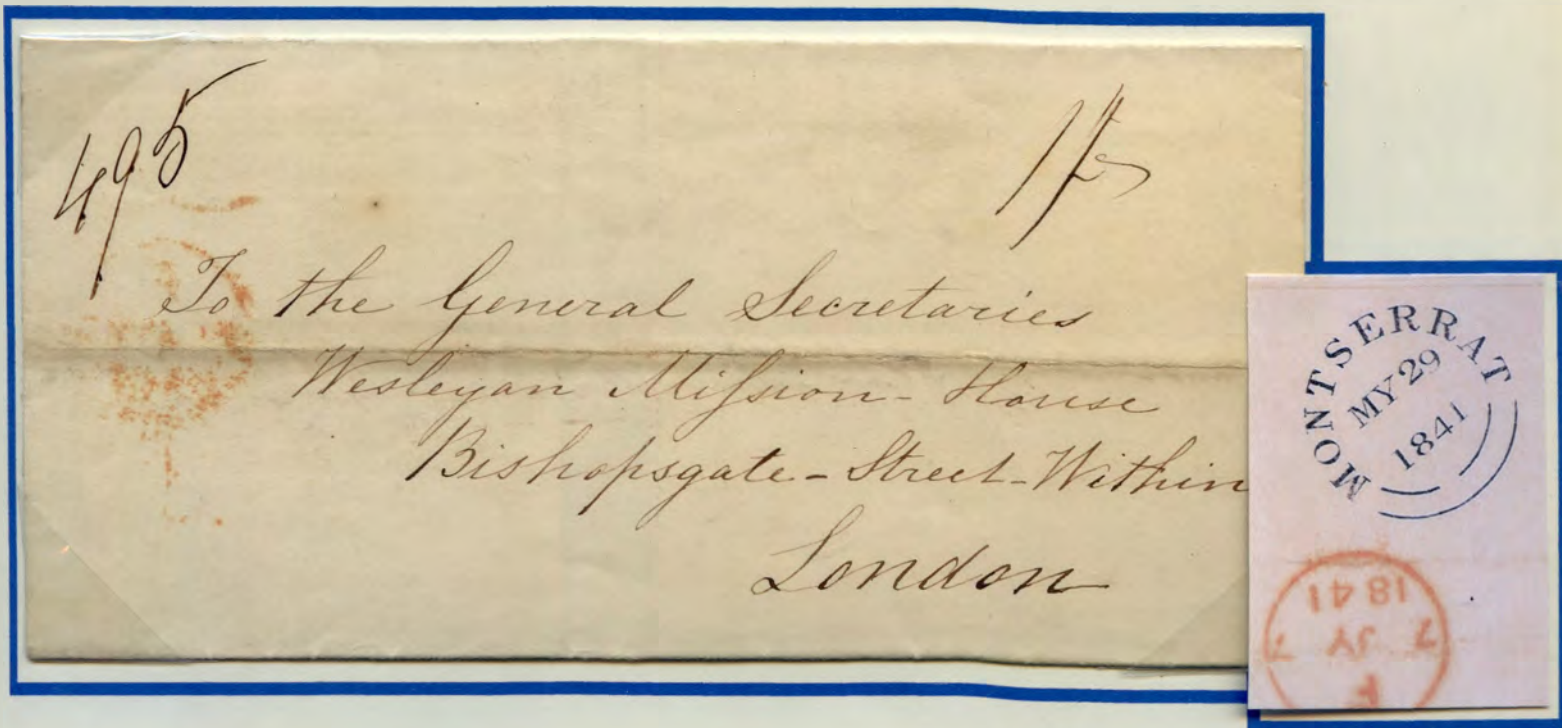 495
1/-
To the General Secretaries
Wesleyan Mission-House
Bishopsgate-Street-Within
London
MONTSERRAT
MY 29
1841
F
7 JY 7
1841